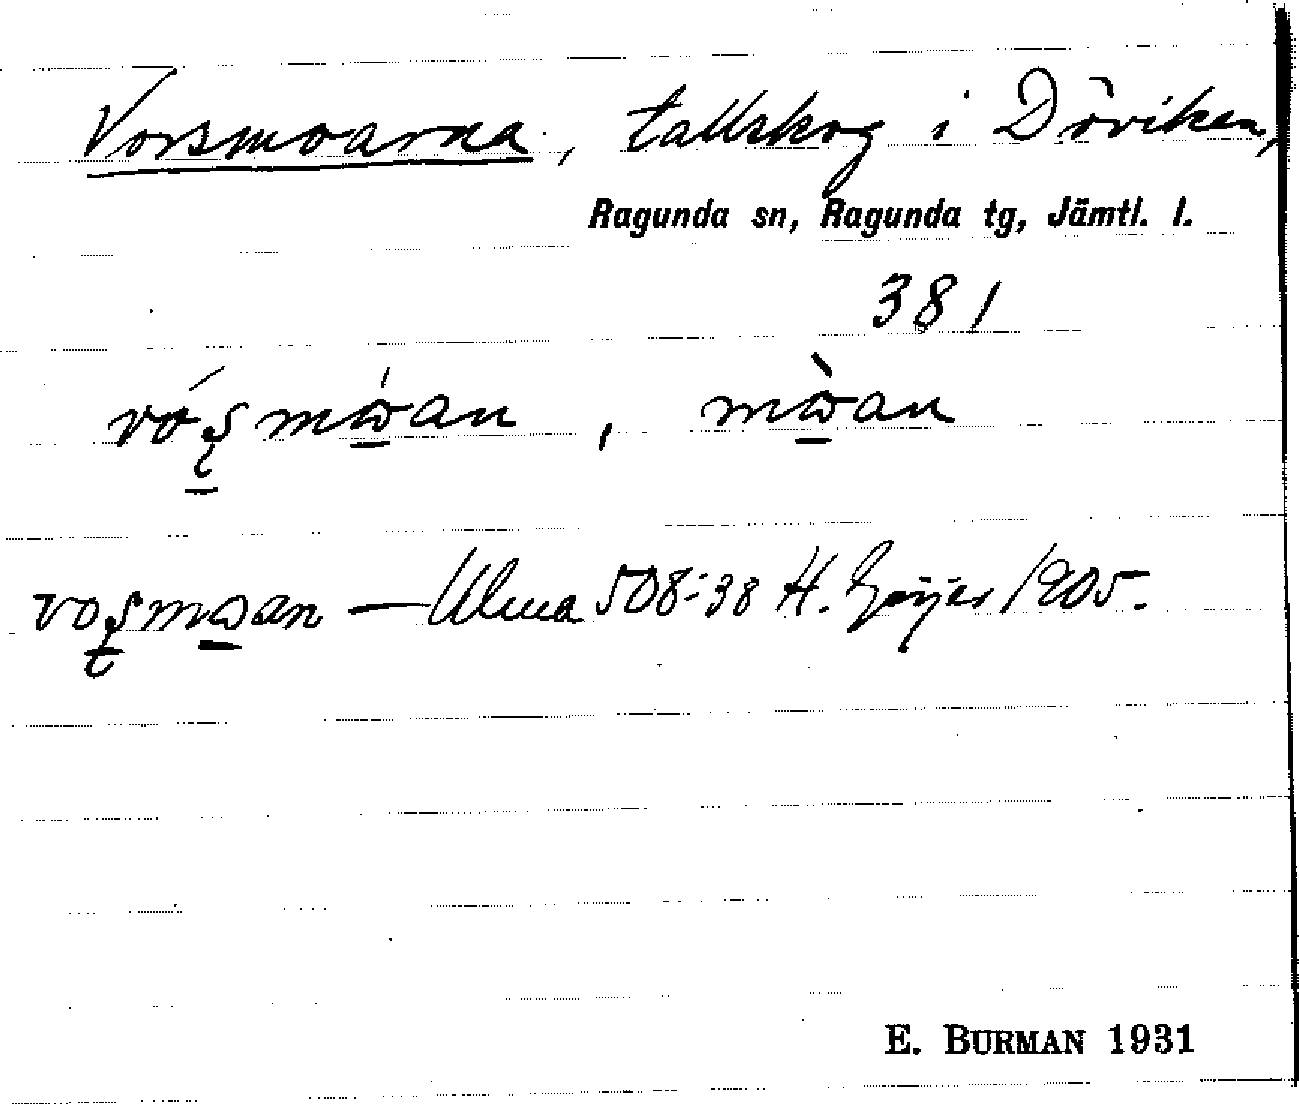 Vorsmoarna, tallskog i Döviken,
Ragunda sn, Ragunda tg, Jämtl. l.
381
mωan
Ulma 508:38 H. Geijer 1905.
E. BURMAN 1931